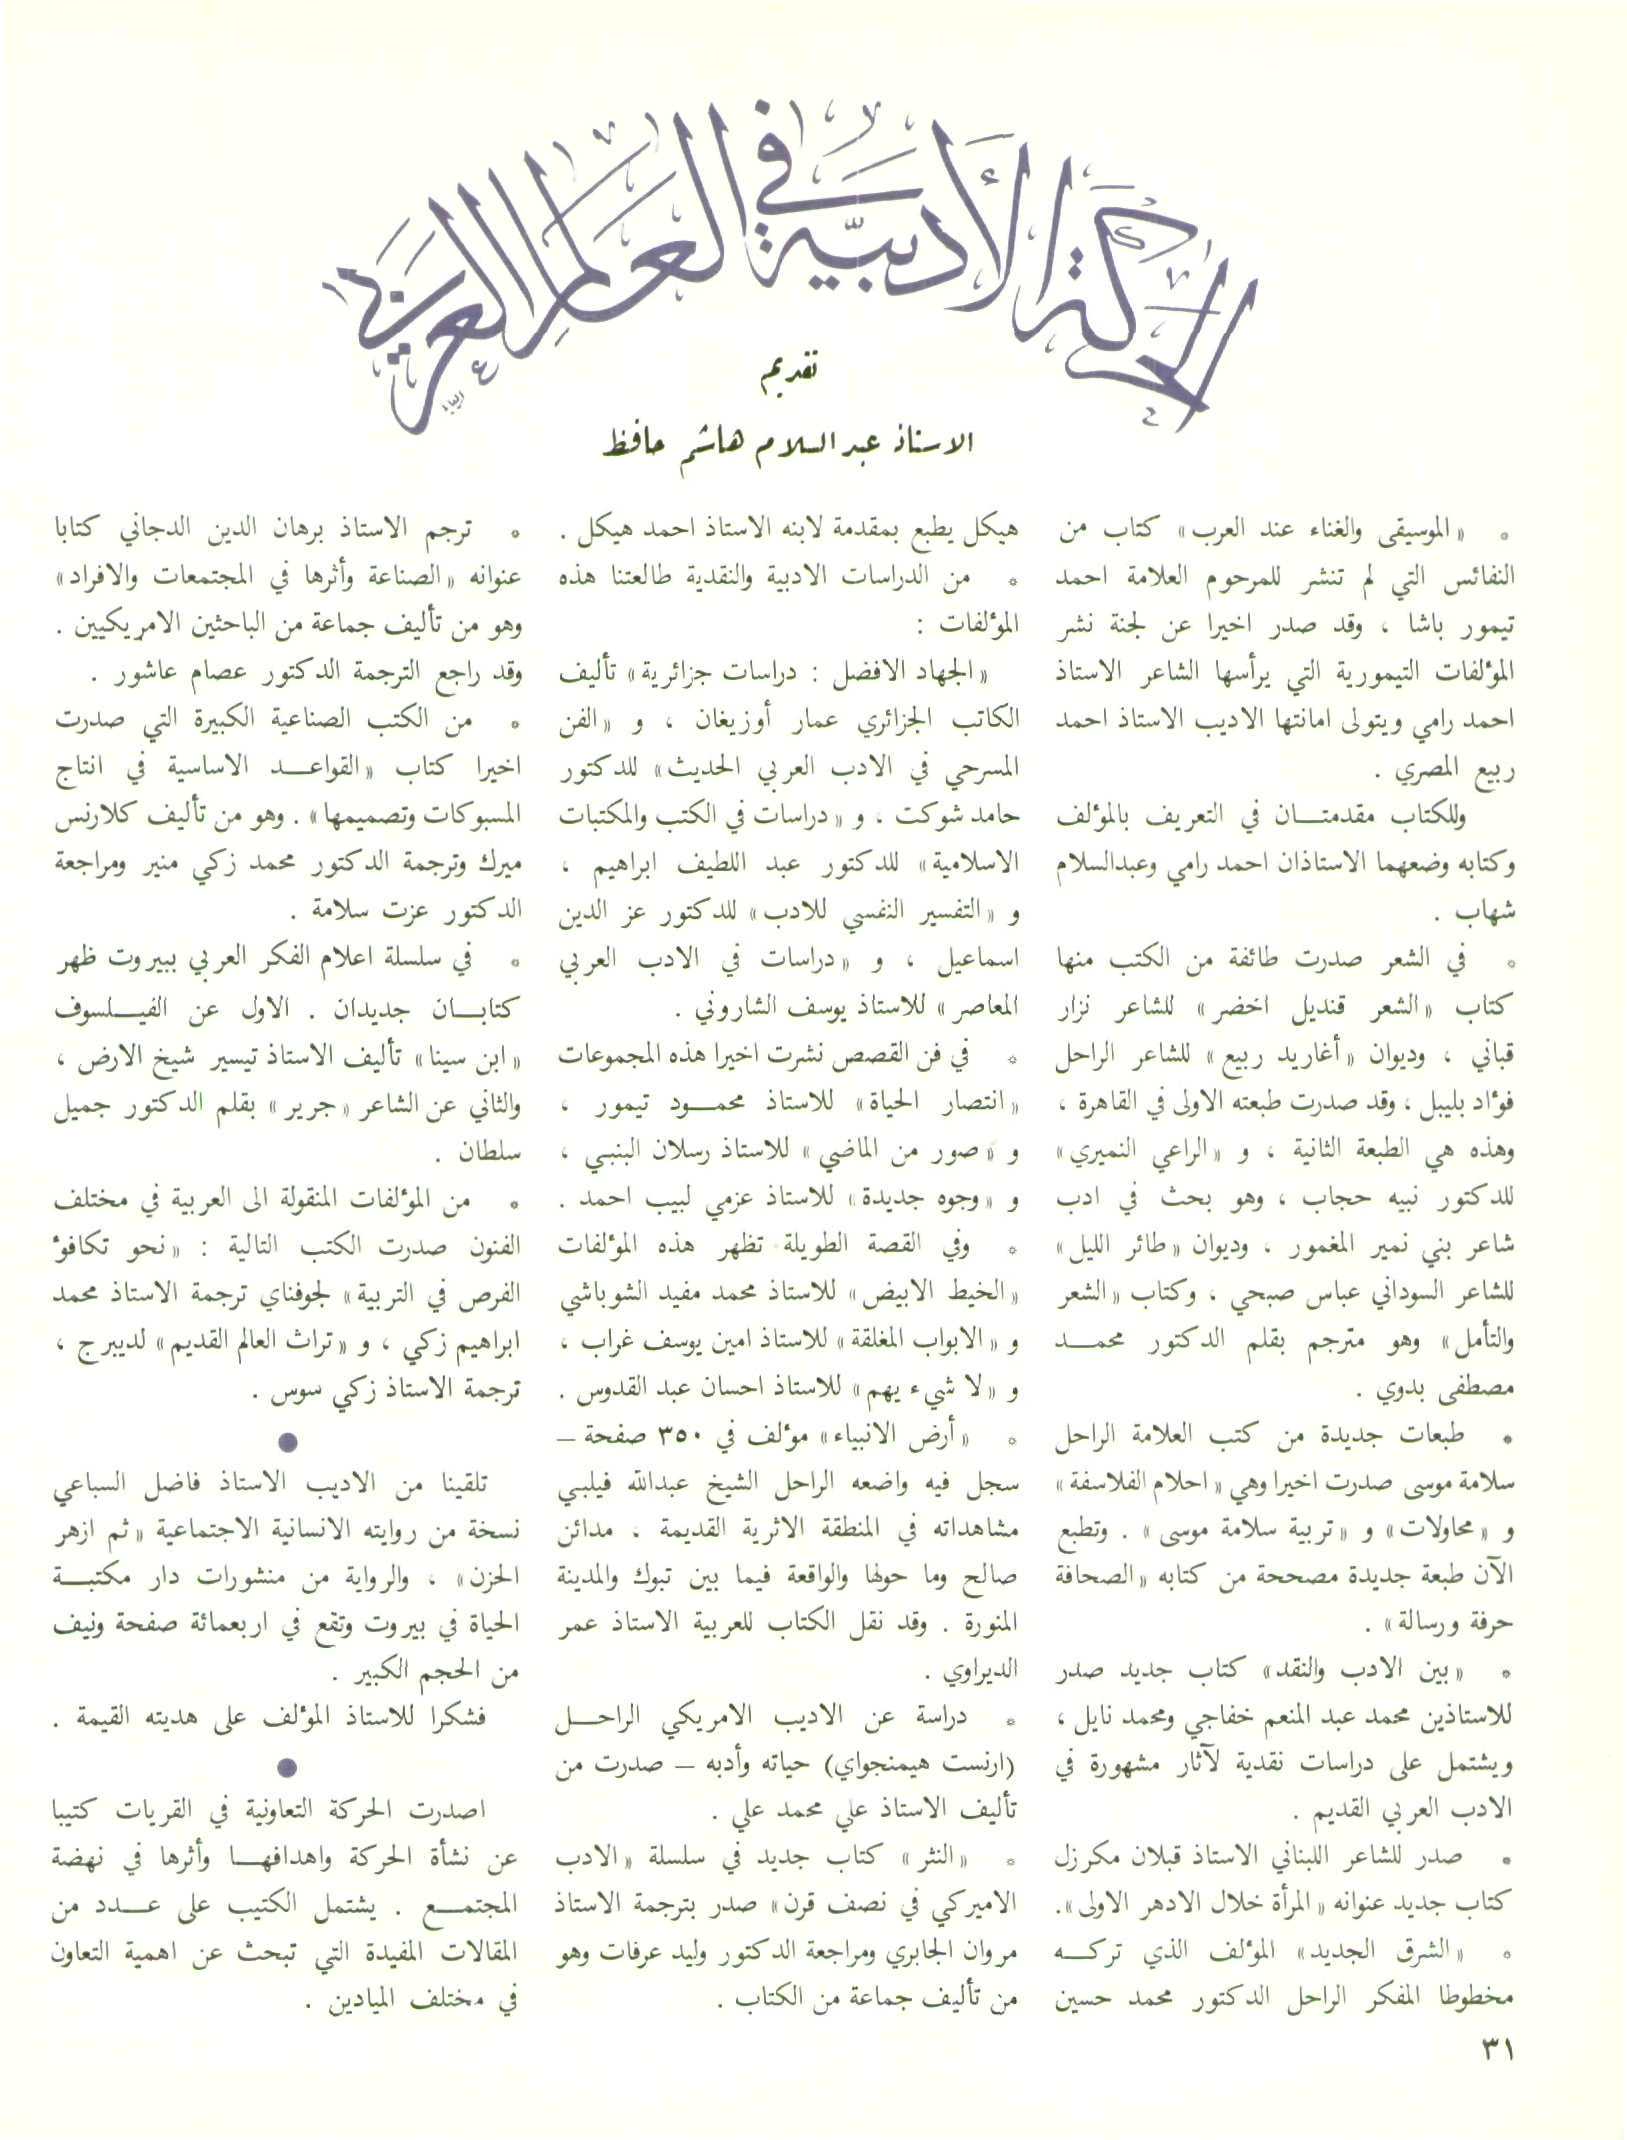 الحركة الأدبية في العالم العربي
تقديم
الاستاذ عبد السلام هاشم حافظ
* «الموسيقى والغناء عند العرب» كتاب من
النفائس التي لم تنشر للمرحوم العلامة احمد
تيمور باشا ، وقد صدر اخيرا عن لجنة نشر
المؤلفات التيمورية التي يرأسها الشاعر الاستاذ
احمد رامي ويتولى امانتها الاديب الاستاذ احمد
ربيع المصري .
وللكتاب مقدمتان في التعريف بالمؤلف
وكتابه وضعهما الاستاذان احمد رامي وعبدالسلام
شهاب .
* في الشعر صدرت طائفة من الكتب منها
كتاب «الشعر قنديل اخضر» للشاعر نزار
قباني ، وديوان «أغاريد ربيع» للشاعر الراحل
فؤاد بليبل ، وقد صدرت طبعته الاولى في القاهرة ،
وهذه هي الطبعة الثانية ، و «الراعي النميري»
للدكتور نبيه حجاب ، وهو بحث في ادب
شاعر بني نمير المغمور ، وديوان «طائر الليل»
للشاعر السوداني عباس صبحي ، وكتاب «الشعر
والتأمل» وهو مترجم بقلم الدكتور محمد
مصطفى بدوي .
* طبعات جديدة من كتب العلامة الراحل
سلامة موسى صدرت اخيرا وهي «احلام الفلاسفة»
و «محاولات» و «تربية سلامة موسى» . وتطبع
الآن طبعة جديدة مصححة من كتابه «الصحافة
حرفة ورسالة» .
* «بين الادب والنقد» كتاب جديد صدر
للاستاذين محمد عبد المنعم خفاجي ومحمد نايل ،
ويشتمل على دراسات نقدية لآثار مشهورة في
الادب العربي القديم .
* صدر للشاعر اللبناني الاستاذ قبلان مكرزل
كتاب جديد عنوانه «المرأة خلال الادهر الاولى».
* «الشرق الجديد» المؤلف الذي تركه
مخطوطا المفكر الراحل الدكتور محمد حسين
هيكل يطبع بمقدمة لابنه الاستاذ احمد هيكل .
* من الدراسات الادبية والنقدية طالعتنا هذه
المؤلفات :
«الجهاد الافضل : دراسات جزائرية» تأليف
الكاتب الجزائري عمار أوزيغان ، و «الفن
المسرحي في الادب العربي الحديث» للدكتور
حامد شوكت ، و «دراسات في الكتب والمكتبات
الاسلامية» للدكتور عبد اللطيف ابراهيم ،
و «التفسير النفسي للادب» للدكتور عز الدين
اسماعيل ، و «دراسات في الادب العربي
المعاصر» للاستاذ يوسف الشاروني .
* في فن القصص نشرت اخيرا هذه المجموعات
«انتصار الحياة» للاستاذ محمود تيمور ،
و «صور من الماضي» للاستاذ رسلان البنبي ،
و «وجوه جديدة» للاستاذ عزمي لبيب احمد .
* وفي القصة الطويلة تظهر هذه المؤلفات
«الخيط الابيض» للاستاذ محمد مفيد الشوباشي
و «الابواب المغلقة» للاستاذ امين يوسف غراب ،
و «لا شيء يهم» للاستاذ احسان عبد القدوس .
* «أرض الانبياء» مؤلف في ٣٥٠ صفحة —
سجل فيه واضعه الراحل الشيخ عبدالله فيلبي
مشاهداته في المنطقة الاثرية القديمة ، مدائن
صالح وما حولها والواقعة فيما بين تبوك والمدينة
المنورة . وقد نقل الكتاب للعربية الاستاذ عمر
الديراوي .
* دراسة عن الاديب الامريكي الراحل
(ارنست هيمنجواي) حياته وأدبه — صدرت من
تأليف الاستاذ علي محمد علي .
* «النثر» كتاب جديد في سلسلة «الادب
الاميركي في نصف قرن» صدر بترجمة الاستاذ
مروان الجابري ومراجعة الدكتور وليد عرفات وهو
من تأليف جماعة من الكتاب .
* ترجم الاستاذ برهان الدين الدجاني كتابا
عنوانه «الصناعة وأثرها في المجتمعات والافراد»
وهو من تأليف جماعة من الباحثين الامريكيين .
وقد راجع الترجمة الدكتور عصام عاشور .
* من الكتب الصناعية الكبيرة التي صدرت
اخيرا كتاب «القواعد الاساسية في انتاج
المسبوكات وتصميمها» . وهو من تأليف كلارنس
ميرك وترجمة الدكتور محمد زكي منير ومراجعة
الدكتور عزت سلامة .
* في سلسلة اعلام الفكر العربي ببيروت ظهر
كتابان جديدان . الاول عن الفيلسوف
«ابن سينا» تأليف الاستاذ تيسير شيخ الارض ،
والثاني عن الشاعر «جرير» بقلم الدكتور جميل
سلطان .
* من المؤلفات المنقولة الى العربية في مختلف
الفنون صدرت الكتب التالية : «نحو تكافؤ
الفرص في التربية» لجوفناي ترجمة الاستاذ محمد
ابراهيم زكي ، و «تراث العالم القديم» لديبرج ،
ترجمة الاستاذ زكي سوس .
●
تلقينا من الاديب الاستاذ فاضل السباعي
نسخة من روايته الانسانية الاجتماعية «ثم ازهر
الحزن» ، والرواية من منشورات دار مكتبة
الحياة في بيروت وتقع في اربعمائة صفحة ونيف
من الحجم الكبير .
فشكرا للاستاذ المؤلف على هديته القيمة .
●
اصدرت الحركة التعاونية في القريات كتيبا
عن نشأة الحركة واهدافها وأثرها في نهضة
المجتمع . يشتمل الكتيب على عدد من
المقالات المفيدة التي تبحث عن اهمية التعاون
في مختلف الميادين .
٣١